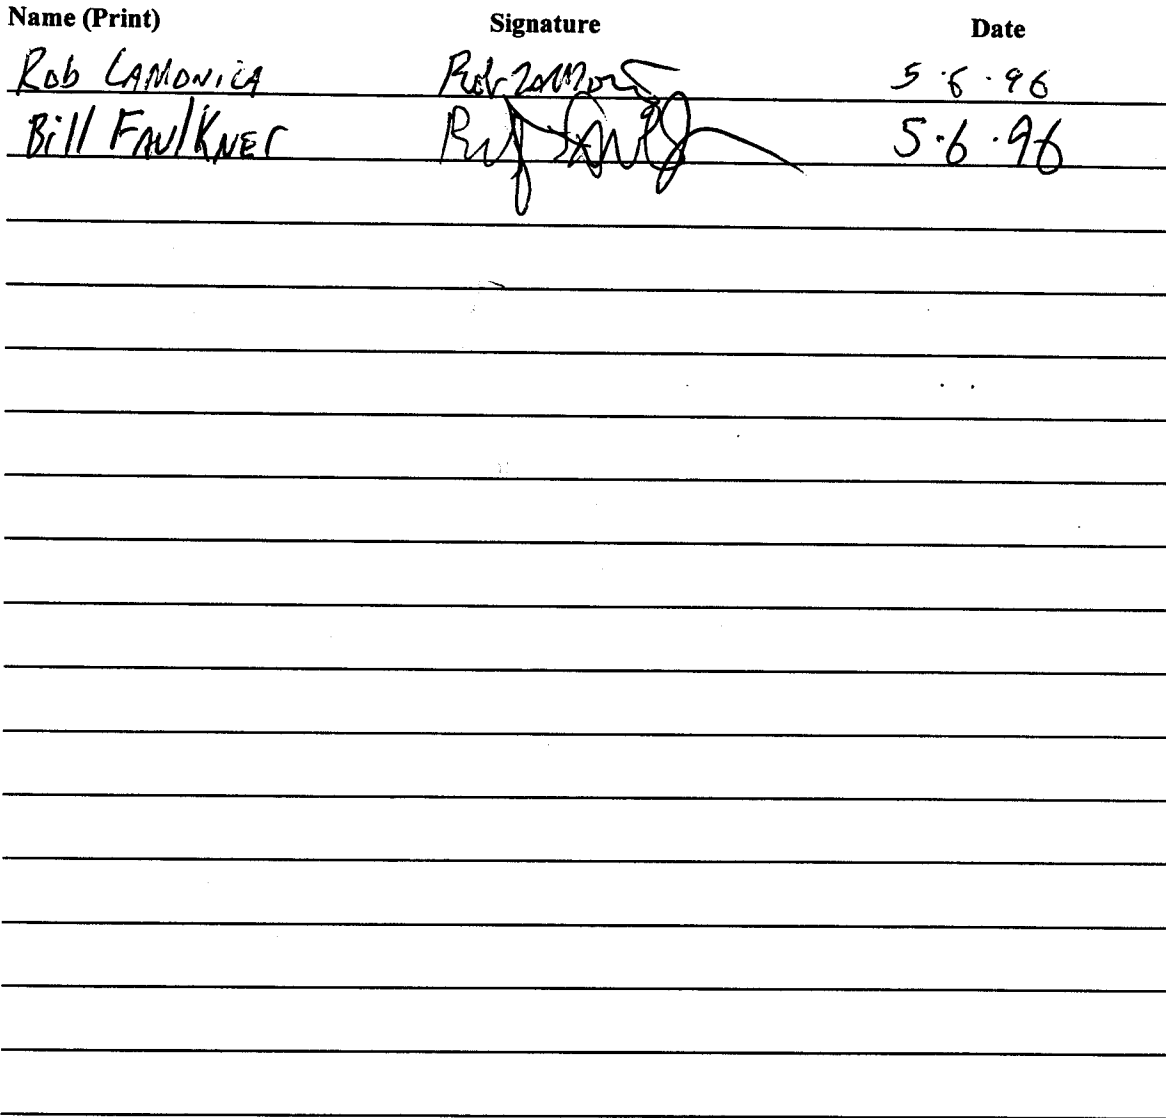 Name (Print) Signature Date
Rob LAMONICA Rob Lamonica 5.6.96
Bill FAulKNEr 5.6.96